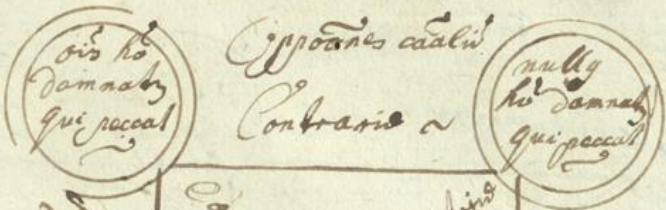 oīs hō
damnatꝫ
qui peccat
Oppōnes cāaliū
Contrarie ~
nullꝯ
hō damnatꝫ
qui peccat